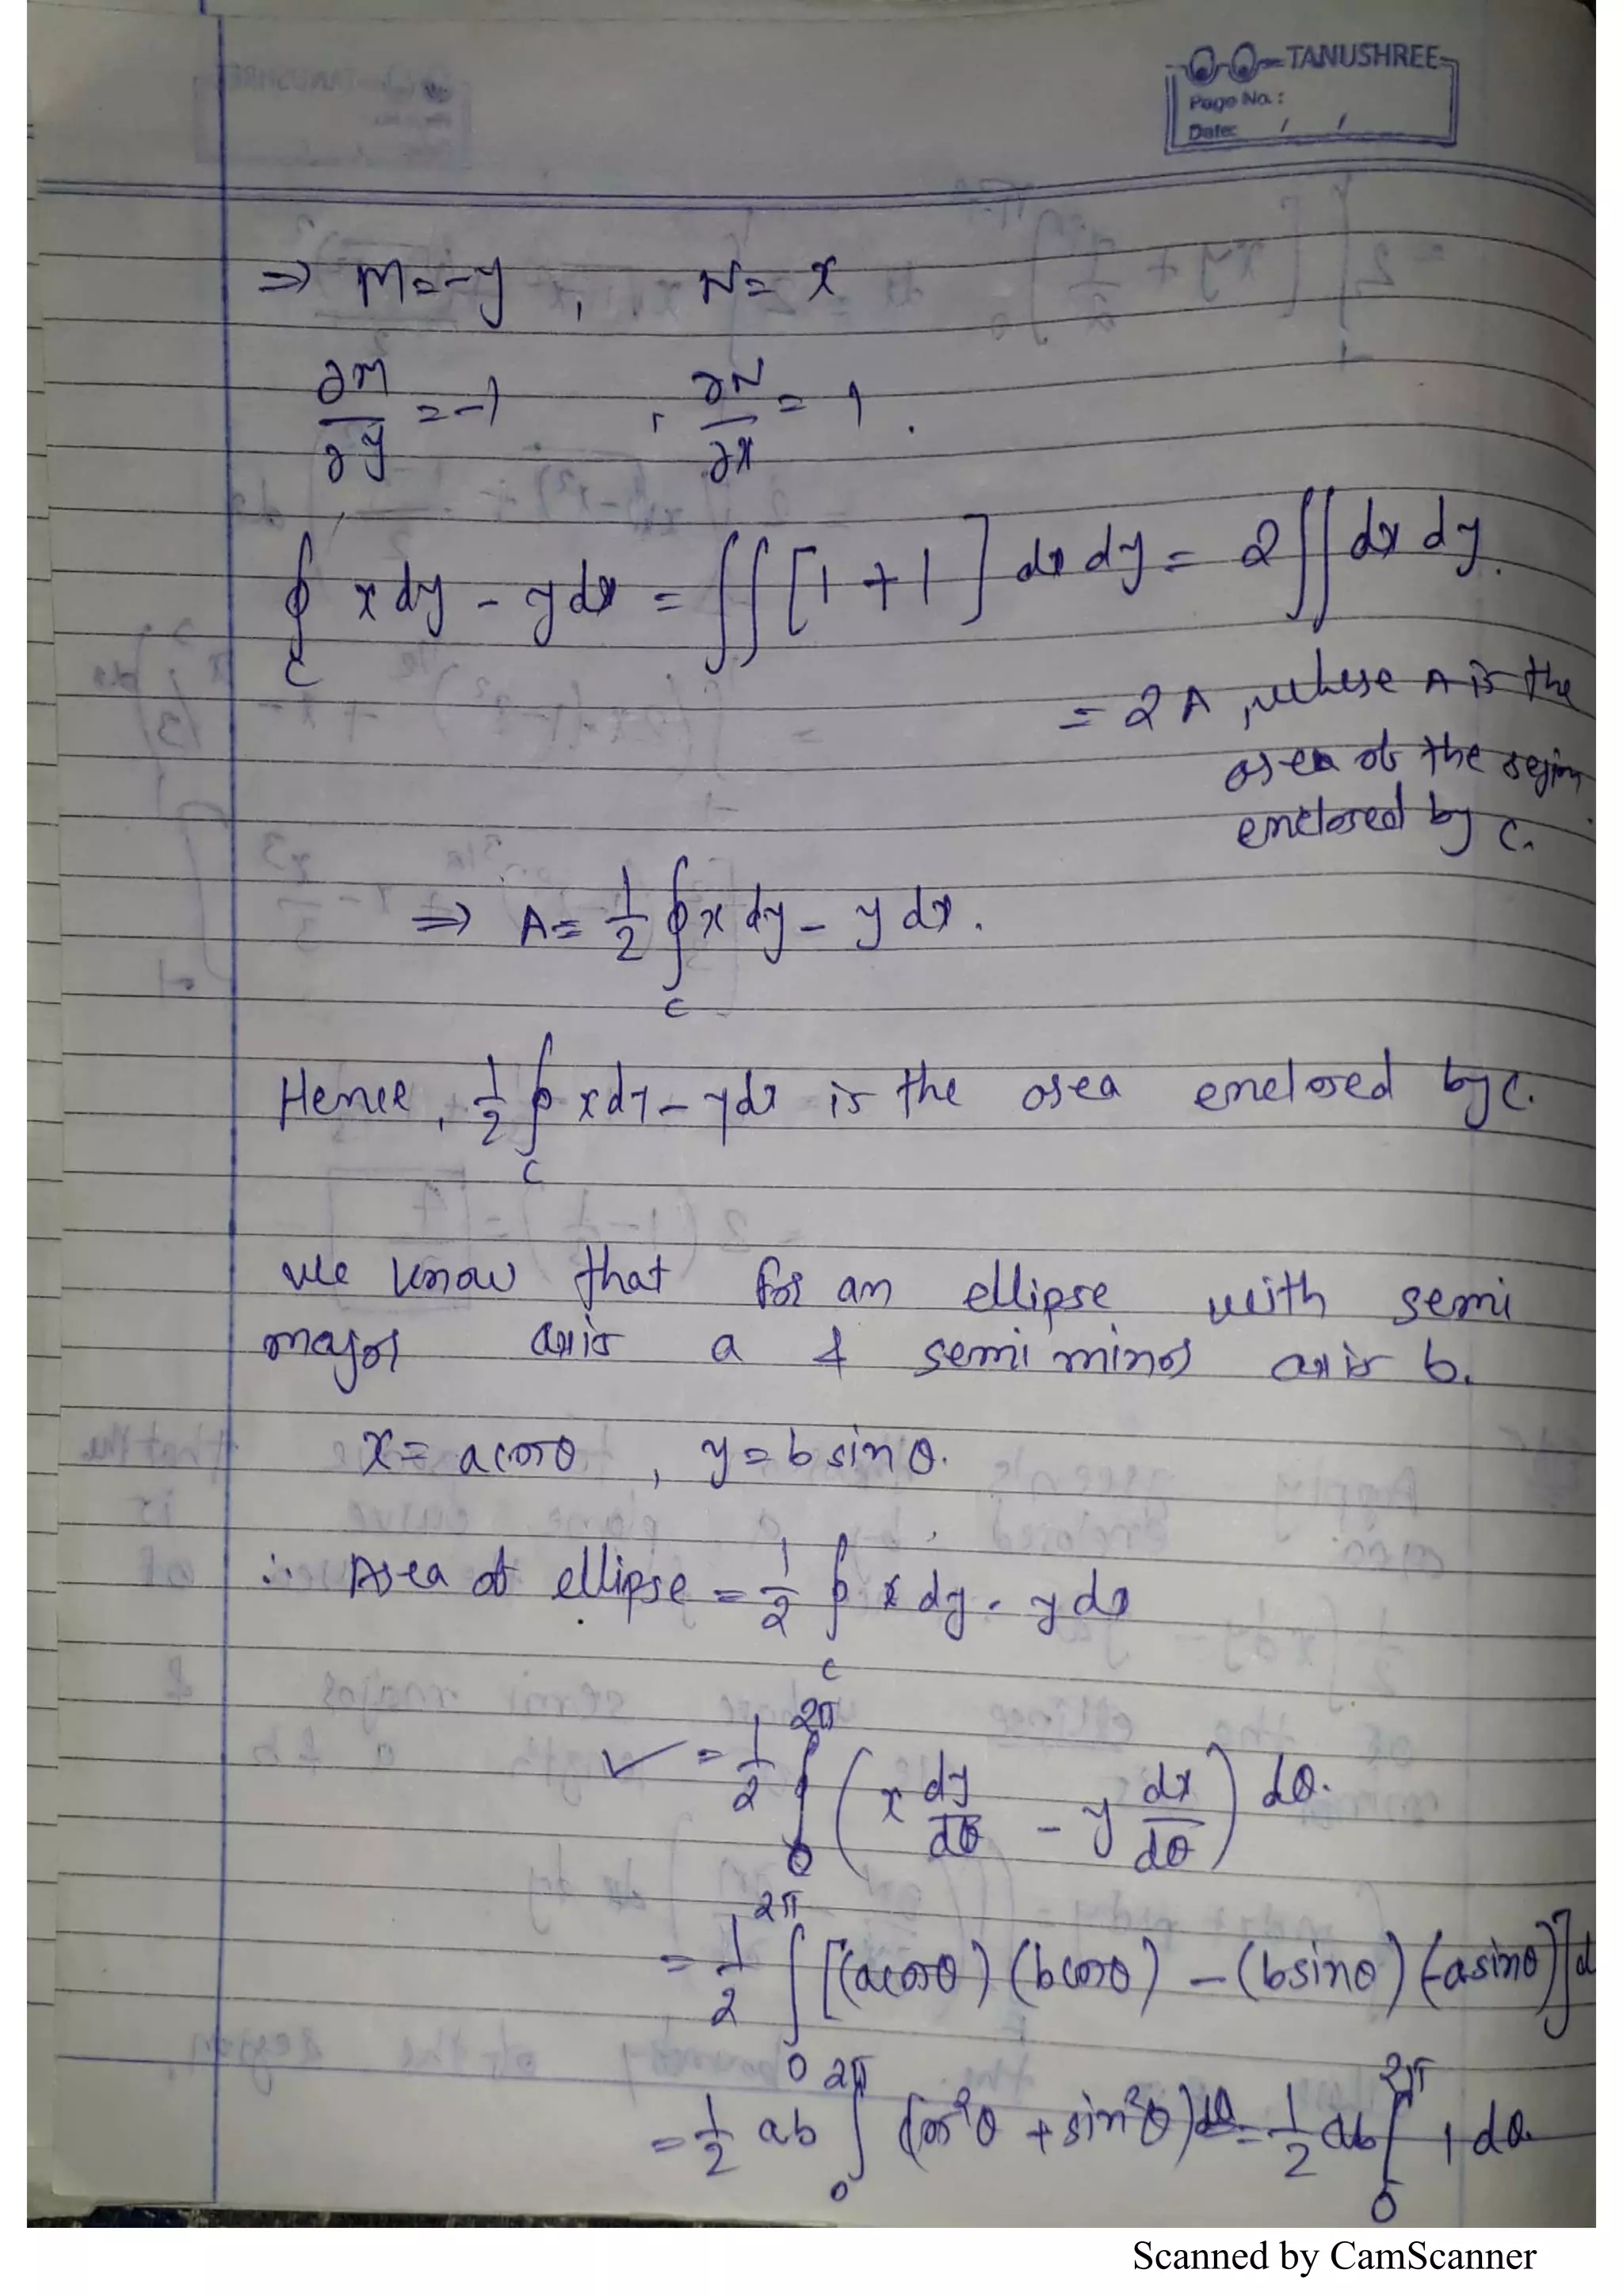 TANUSHREE
Page No.:
Date: / /
⇒ M = -y , N = x
∂M/∂y = -1 , ∂N/∂x = 1 .
∮_C x dy - y dx = ∬ [1 + 1] dx dy = 2 ∬ dx dy.
= 2A , where A is the
area of the region
enclosed by C.
⇒ A = 1/2 ∮_C x dy - y dx .
Hence, 1/2 ∮_C x dy - y dx is the area enclosed by C.
we know that for an ellipse with semi
major axis a & semi minor axis b.
x = a cosθ , y = b sinθ.
∴ Area of ellipse = 1/2 ∮_C x dy - y dx
✓ = 1/2 ∫_0^2π (x dy/dθ - y dx/dθ) dθ.
= 1/2 ∫_0^2π [(a cosθ) (b cosθ) - (b sinθ) (-a sinθ)] d
= 1/2 ab ∫_0^2π (cos²θ + sin²θ) dθ = 1/2 ab ∫_0^2π 1 dθ.
Scanned by CamScanner